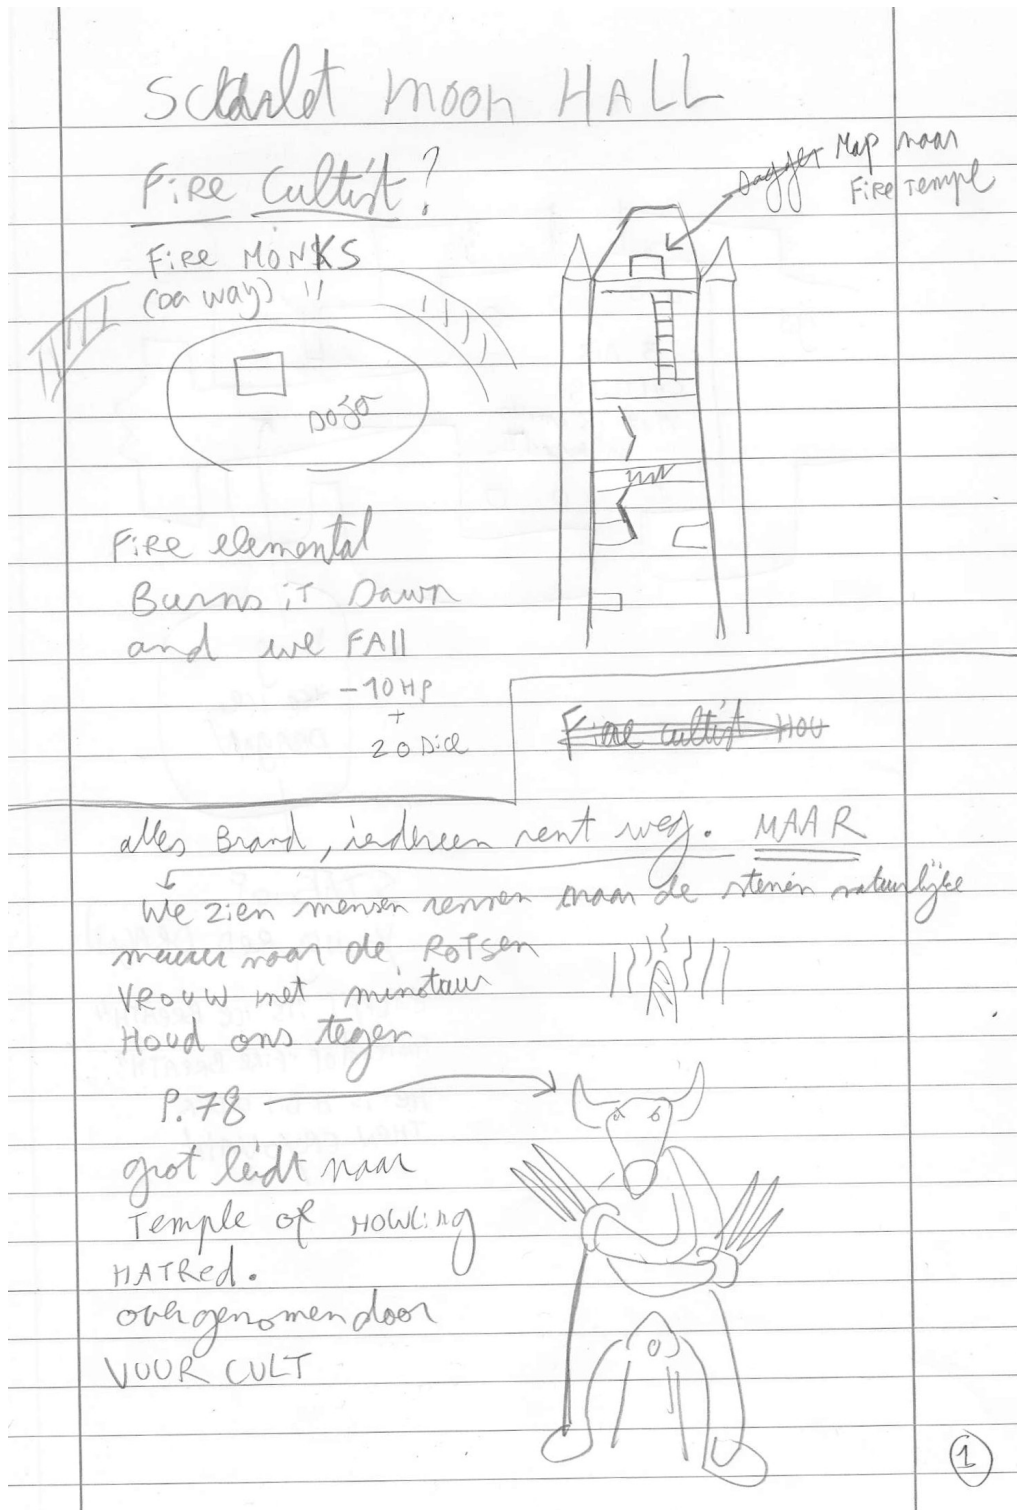 Scarlet Moon HALL
Fire Cultist?
Fire MONKS
(oa way) !!
Dojo
Dagger Map naar
Fire Templ
Fire elemental
Burns iT Dawn
and we FAll
-10 HP
+
20 Dice
Fire cultist HOU
alles Brand, iedereen rent weg. MAAR
We zien mensen rennen naar de stenen natuurlijke
muur naar de ROTSEN
VROUW met minotaur
Houd ons tegen
P.78
grot leidt naar
Temple of HOWLing
HATRed.
overgenomen door
VUUR CULT
1